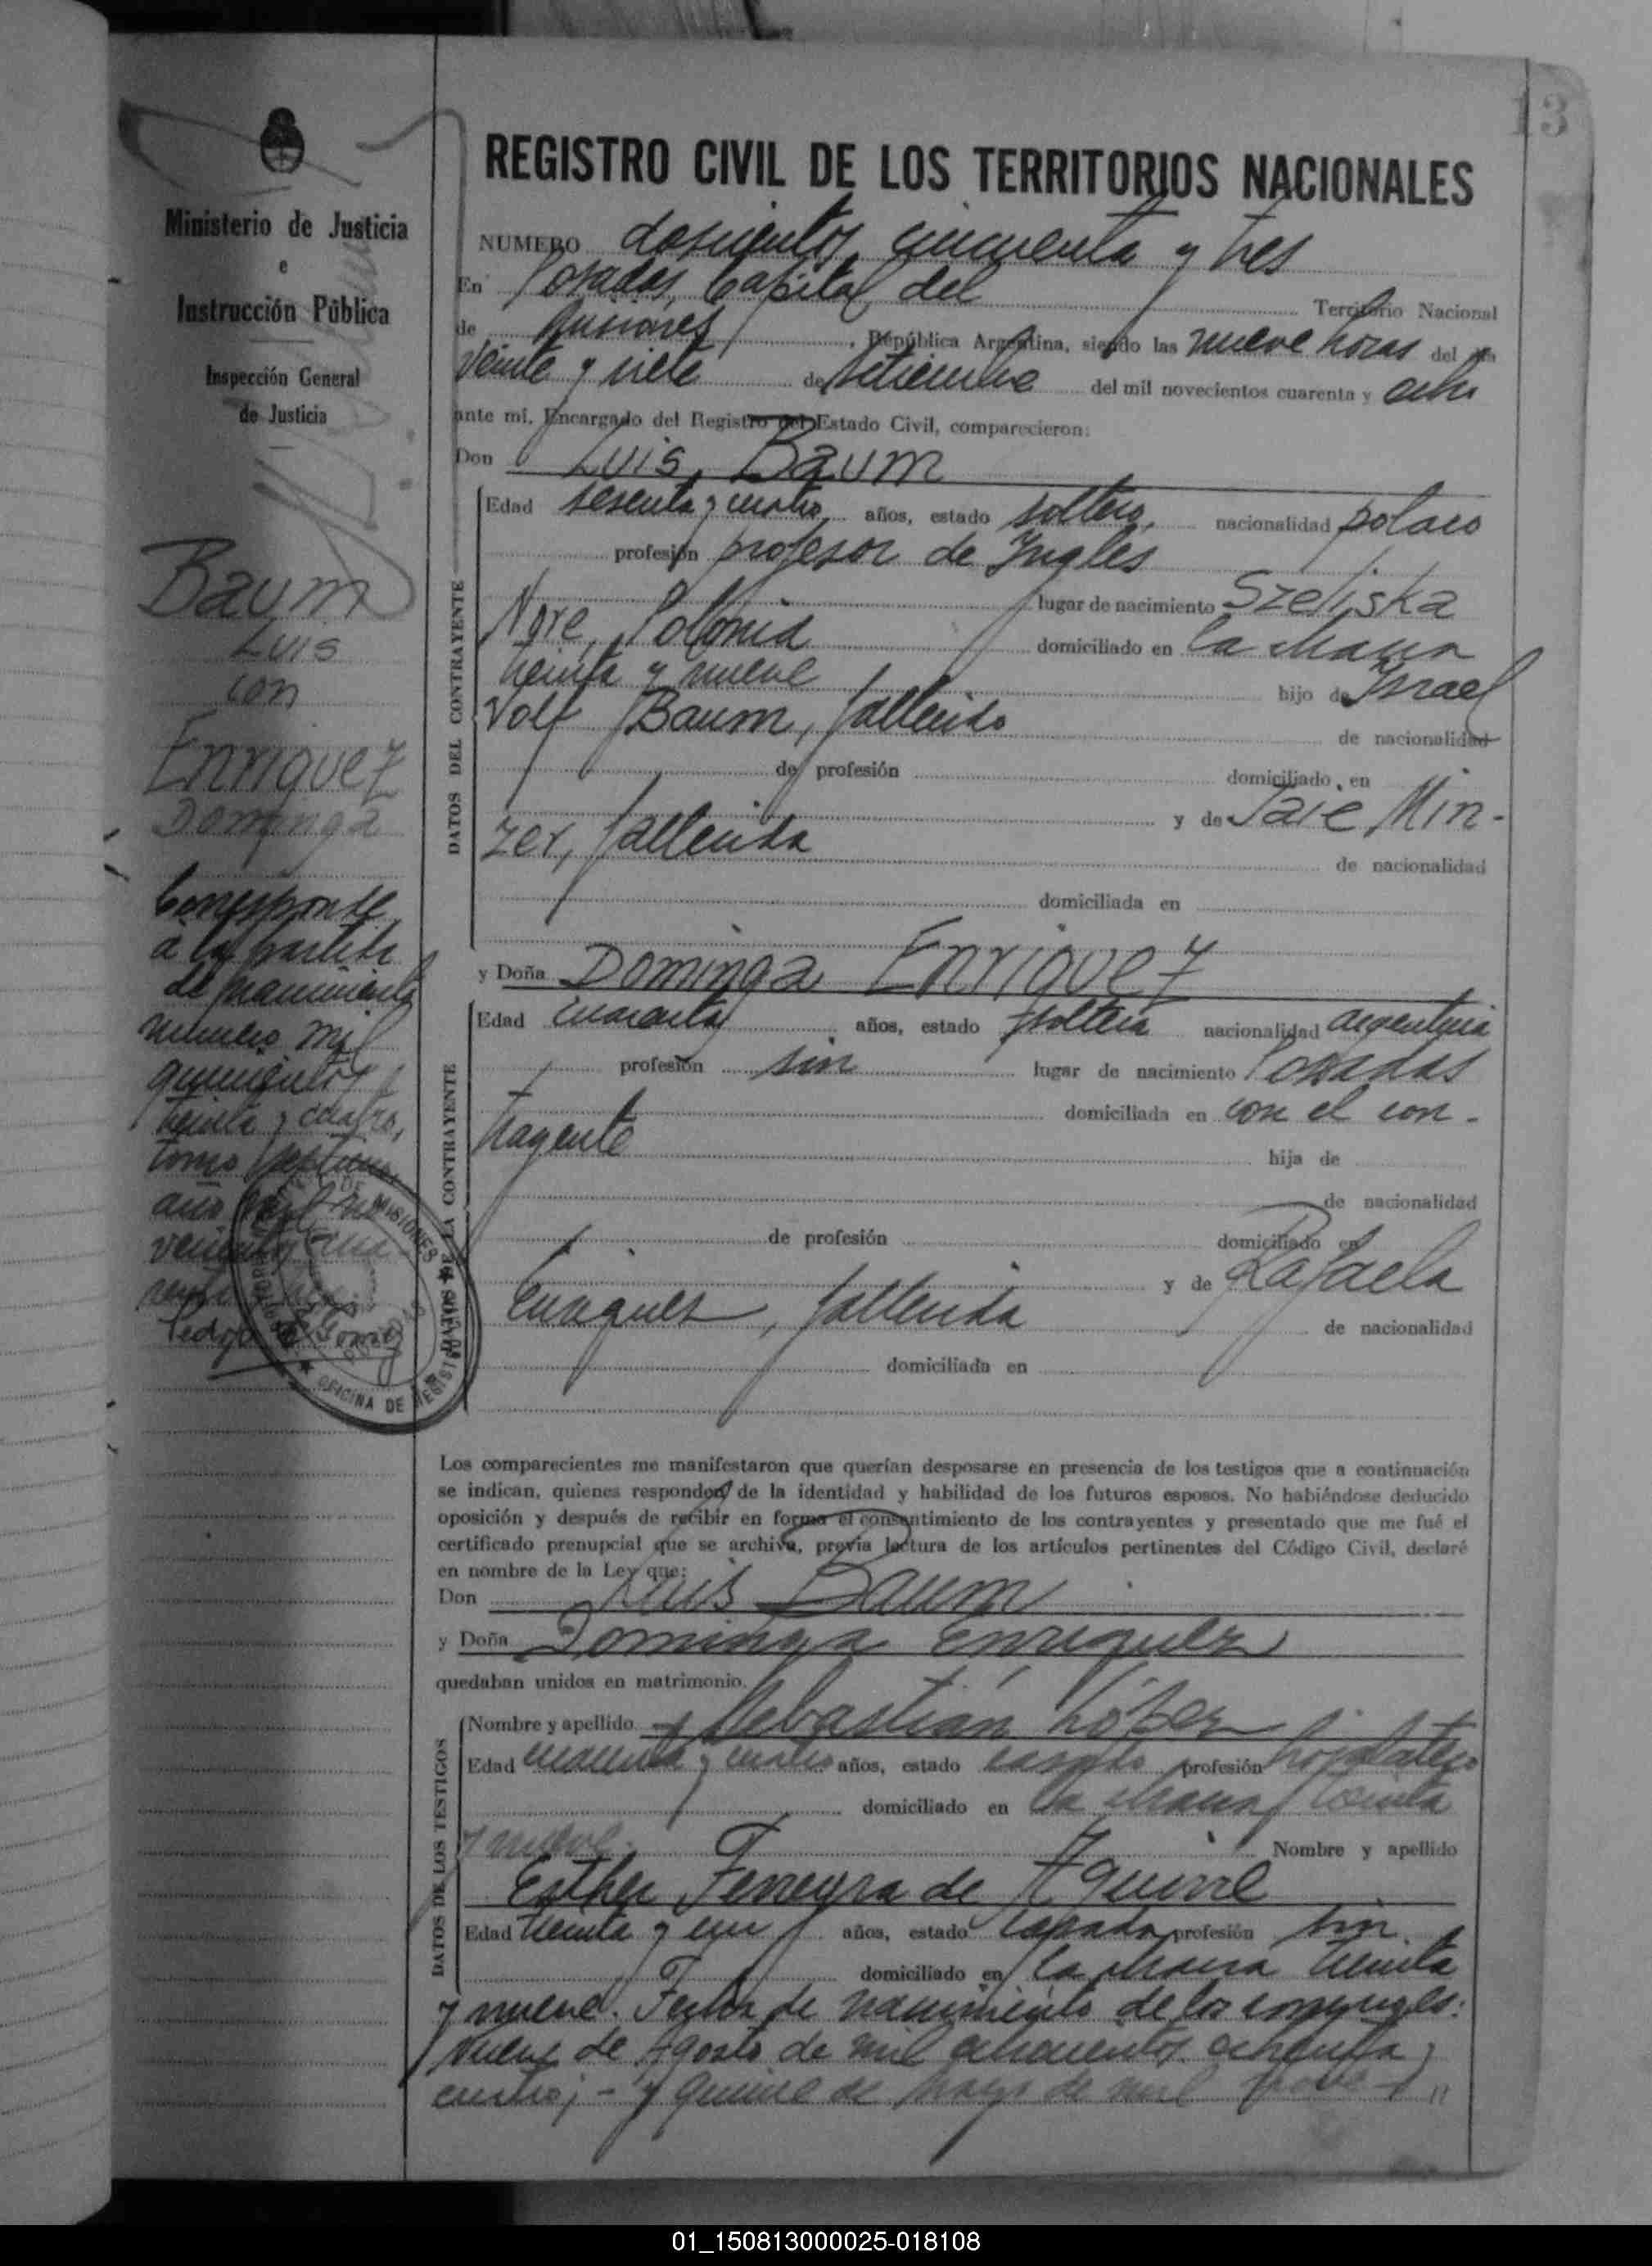 13
Ministerio de Justicia
e
Instrucción Pública
Inspección General
de Justicia
Baum
Luis
con
Enriquez
Dominga
Corresponde
a la partida
de nacimiento
número mil
quinientos
treinta y cuatro,
tomo septimo
año mil no
vecientos cua
Pedro Gomez
REGISTRO CIVIL DE LOS TERRITORIOS NACIONALES
NUMERO doscientos cincuenta y tres
En Posadas, Capital del Territorio Nacional
de Misiones, República Argentina, siendo las nueve horas del día
veinte y siete de setiembre del mil novecientos cuarenta y ocho
ante mí, Encargado del Registro del Estado Civil, comparecieron:
Don Luis Baum
DATOS DEL CONTRAYENTE
Edad sesenta y cuatro años, estado soltero, nacionalidad polaco
profesión profesor de Ingles
lugar de nacimiento Szeliska
Nore, Polonia domiciliado en la chacra
treinta y nueve hijo de Israel
Volf Baum, fallecido de nacionalidad
de profesión domiciliado en
y de Taie Min-
zer, fallecida de nacionalidad
domiciliada en
y Doña Dominga Enriquez
DATOS DE LA CONTRAYENTE
Edad cuarenta años, estado soltera nacionalidad argentina
profesión sin lugar de nacimiento Posadas
domiciliada en con el con-
trayente hija de
de nacionalidad
de profesión domiciliado en
y de Rafaela
Enriquez, fallecida de nacionalidad
domiciliada en
MISIONES
OFICINA DE REGISTRO
Los comparecientes me manifestaron que querían desposarse en presencia de los testigos que a continuación
se indican, quienes responden de la identidad y habilidad de los futuros esposos. No habiéndose deducido
oposición y después de recibir en forma el consentimiento de los contrayentes y presentado que me fué el
certificado prenupcial que se archiva, previa lectura de los artículos pertinentes del Código Civil, declaré
en nombre de la Ley que:
Don Luis Baum
y Doña Dominga Enriquez
quedaban unidos en matrimonio.
DATOS DE LOS TESTIGOS
Nombre y apellido Sebastián López
Edad cuarenta y cuatro años, estado casado profesión hojalatero
domiciliado en la chacra treinta
y nueve. Nombre y apellido
Esther Ferreyra de Aguirre
Edad treinta y un años, estado casada profesión sin
domiciliado en la chacra treinta
y nueve. Fecha de nacimiento de los conyuges:
Nueve de Agosto de mil ochocientos ochenta y
cuatro; - y quince de mayo de mil nove-
01_150813000025-018108